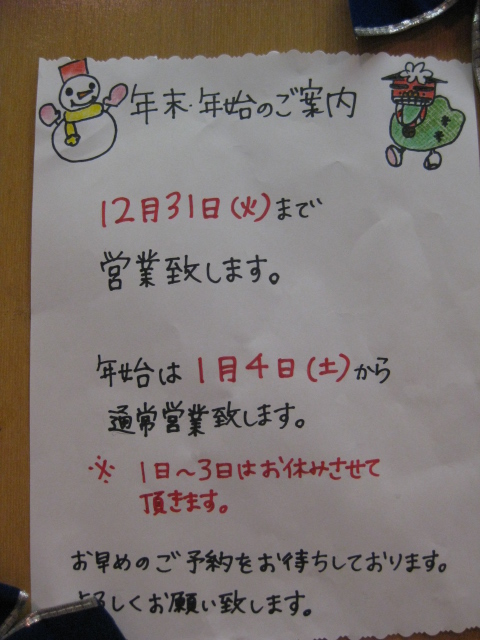 年末・年始のご案内
12月31日(火)まで
営業致します。
年始は1月4日(土)から
通常営業致します。
※ 1日〜3日はお休みさせて
頂きます。
お早めのご予約をお待ちしております。
よろしくお願い致します。